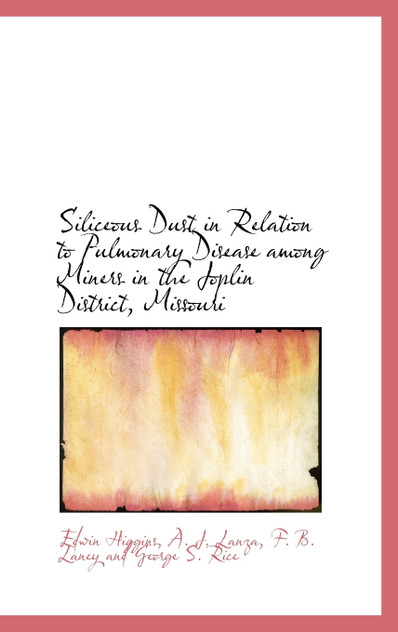 Siliceous Dust in Relation
to Pulmonary Disease among
Miners in the Joplin
District, Missouri
Edwin Higgins, A. J. Lanza, F. B.
Laney and George S. Rice